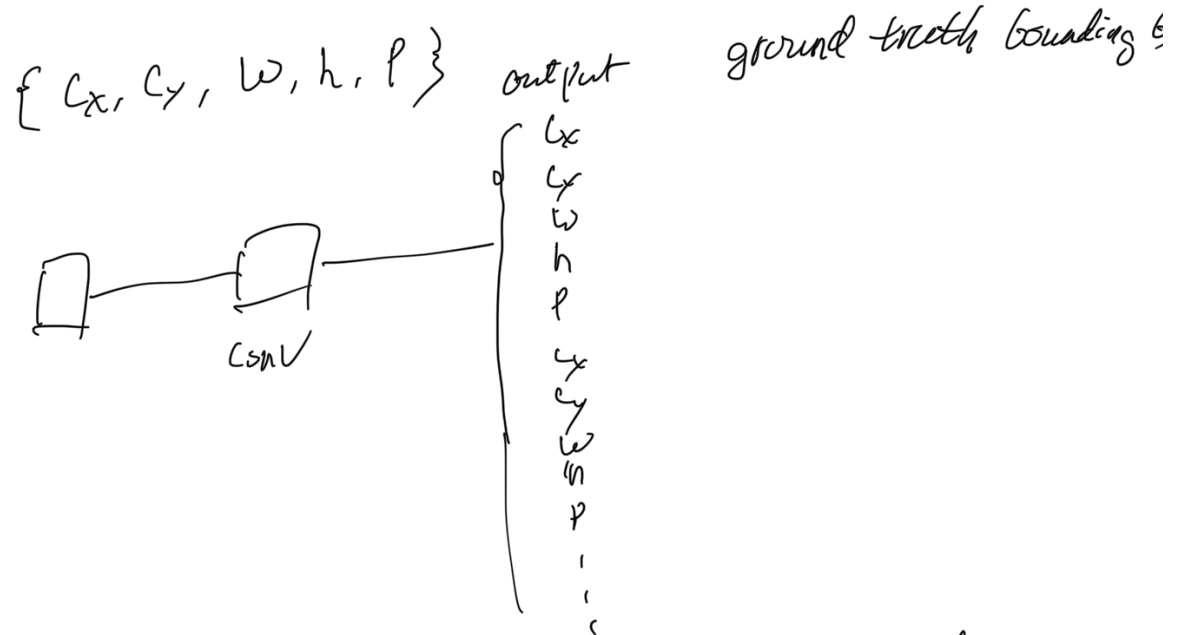 { Cx, Cy, W, h, P }
output
ground truth bounding
Cx
Cy
W
h
P
Cx
Cy
W
h
P
conv